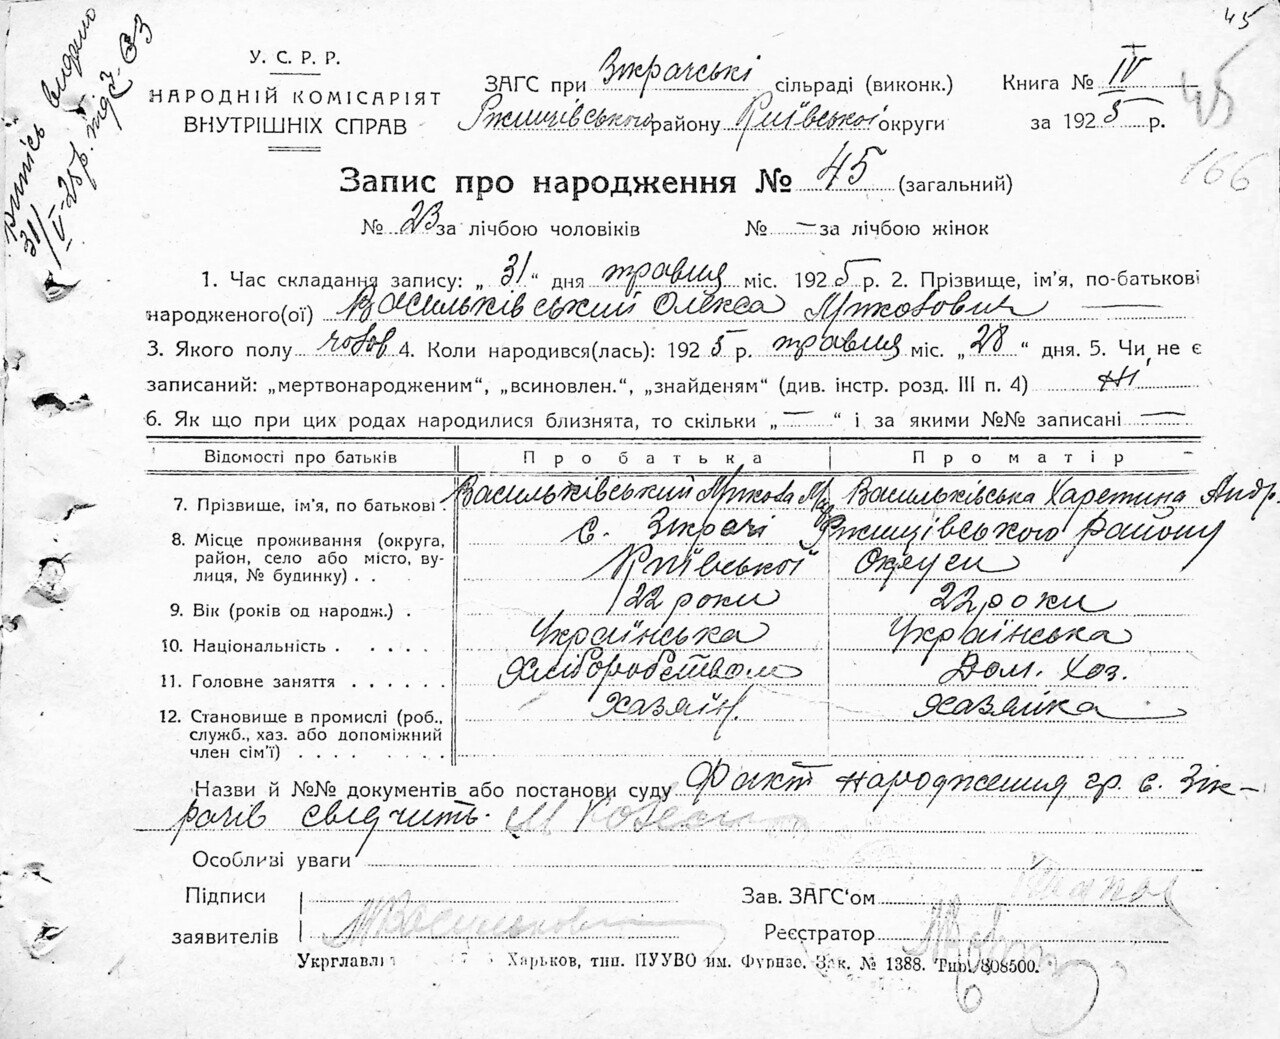 45
У. С. Р. Р.
НАРОДНІЙ КОМІСАРІЯТ
ВНУТРІШНІХ СПРАВ
ЗАГС при Зікрачські сільраді (виконк.)
Ржищівського району Київської округи
Книга № IV
за 1925 р.
45
166
Запис про народження № 45 (загальний)
№ 23 за лічбою чоловіків № — за лічбою жінок
1. Час складання запису: „ 31 “ дня травня міс. 1925 р. 2. Прізвище, ім'я, по-батькові
народженого(ої) Васильківський Олекса
3. Якого полу чолов 4. Коли народився(лась): 1925 р. травня міс. „ 28 “ дня. 5. Чи не є
записаний: „мертвонародженим“, „всиновлен.“, „знайденям“ (див. інстр. розд. III п. 4) ні
6. Як що при цих родах народилися близнята, то скільки „ — “ і за якими №№ записані —
Відомості про батьків Про батька Про матір
7. Прізвище, ім'я, по батькові . Васильківський Васильківська Харетина Андр.
8. Місце проживання (округа, с. Зікрачі Ржищівського району
район, село або місто, вулиця, № будинку) . . Київської Округи
9. Вік (років од народж.) . 22 роки 22 роки
10. Національність . . . . . Українська Українська
11. Головне заняття . . . . . . Хліборобством Дом. Хоз.
12. Становище в промислі (роб., Хазяїн. Хазяйка
служб., хаз. або допоміжний
член сім'ї) . . . . . . . .
Назви й №№ документів або постанови суду Факт народження гр. с. Зік-
рачів свідчить.
Особливі уваги
Підписи
заявителів
Зав. ЗАГС‘ом
Реєстратор
Укрглавлі Харьков, тип. ПУУВО им. Фрунзе. Зак. № 1388. Тир. 808500.